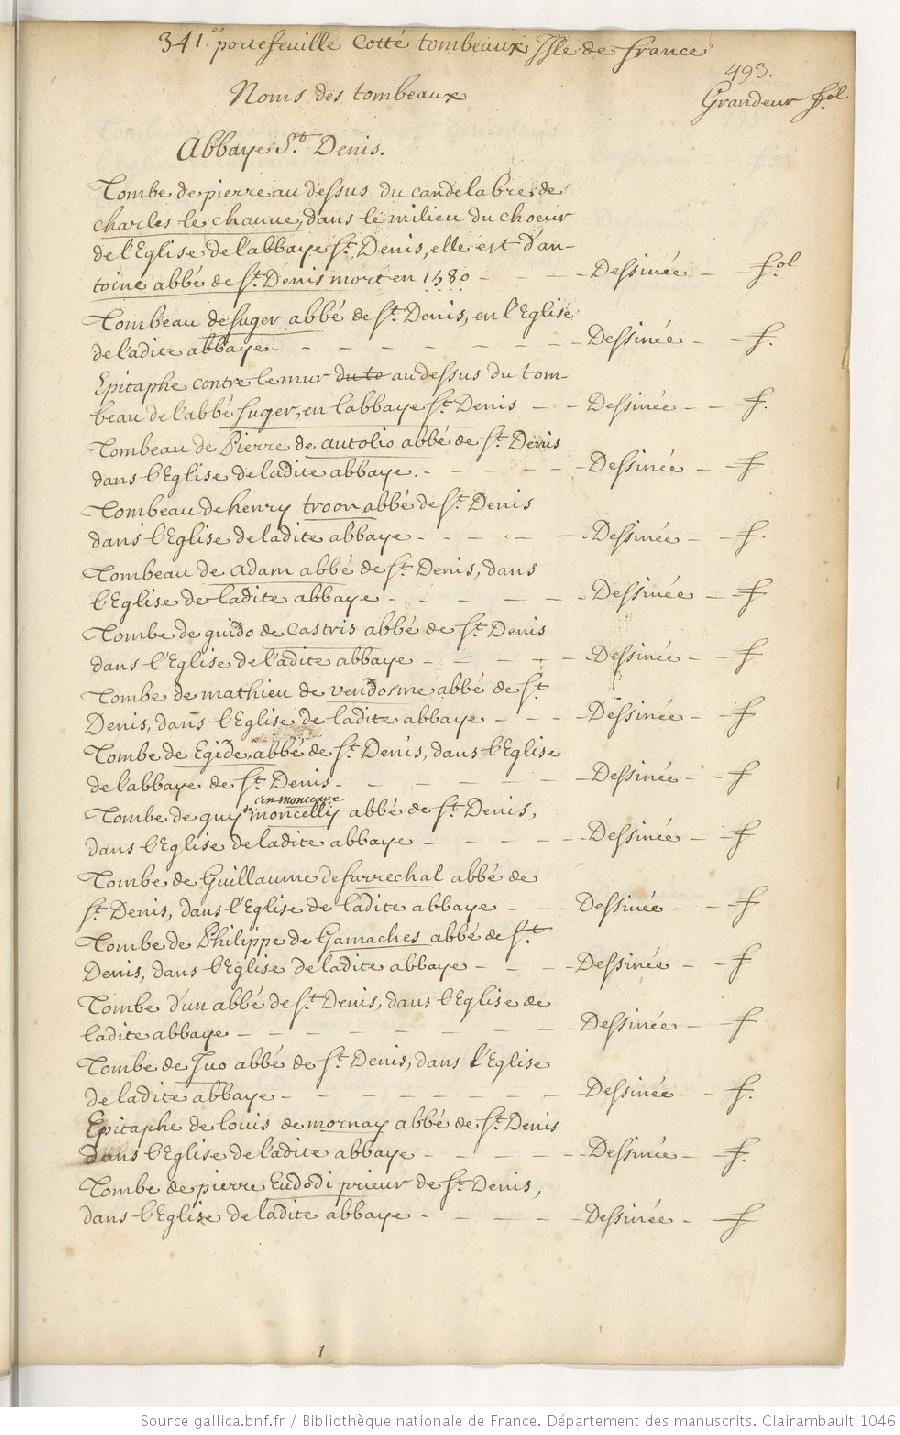 341.e portefeuille Cotté tombeaux Isle de france
493.
Noms des tombeaux
Grandeur fol.
Abbaye St. Denis.
Tombe de pierre au dessus du candelabre de
charles le chauve, dans le milieu du choeur
de l'Eglise de l'abbaye St. Denis, elle est d'an-
toine abbé de St. Denis mort en 1580 - - - Dessinée - fol
Tombeau de suger abbé de St. Denis, en l'Eglise
de ladite abbaye - - - - - - - - Dessinée - - f.
Epitaphe contre le mur du to au dessus du tom-
beau de l'abbé suger, en l'abbaye St. Denis - - Dessinée - - f.
Tombeau de Pierre de autolio abbé de St. Denis
dans l'Eglise de ladite abbaye. - - - - - Dessinée - f
Tombeau de henry troon abbé de St. Denis
dans l'Eglise de ladite abbaye - - - - - Dessinée - - f.
Tombeau de adam abbé de St. Denis, dans
l'Eglise de ladite abbaye - - - - - Dessinée - f
Tombe de guido de Castris abbé de St. Denis
dans l'Eglise de ladite abbaye - - - - - Dessinée - f
Tombe de mathieu de vendosme abbé de St
Denis, dans l'Eglise de ladite abbaye - - - Dessinée - f
Tombe de Egide abbé de St. Denis, dans l'Eglise
de l'abbaye de St. Denis - - - - - - Dessinée - f
Tombe de guy de moncelly abbé de St. Denis,
dans l'Eglise de ladite abbaye - - - - - Dessinée - f
Tombe de Guillaume de farrechal abbé de
St. Denis, dans l'Eglise de ladite abbaye - Dessinée - f
Tombe de Philippe de Gamaches abbé de St
Denis, dans l'Eglise de ladite abbaye - - - - Dessinée - - f
Tombe d'un abbé de St. Denis, dans l'Eglise de
ladite abbaye - - - - - - - - - Dessinée - f
Tombe de Juo abbé de St. Denis, dans l'Eglise
de ladite abbaye - - - - - - - - Dessinée - f.
Epitaphe de louis de mornay abbé de St. Denis
dans l'Eglise de ladite abbaye - - - - - Dessinée - f.
Tombe de pierre Eudodi prieur de St. Denis,
dans l'Eglise de ladite abbaye - - - - - Dessinée - f
1
Source gallica.bnf.fr / Bibliothèque nationale de France. Département des manuscrits. Clairambault 1046